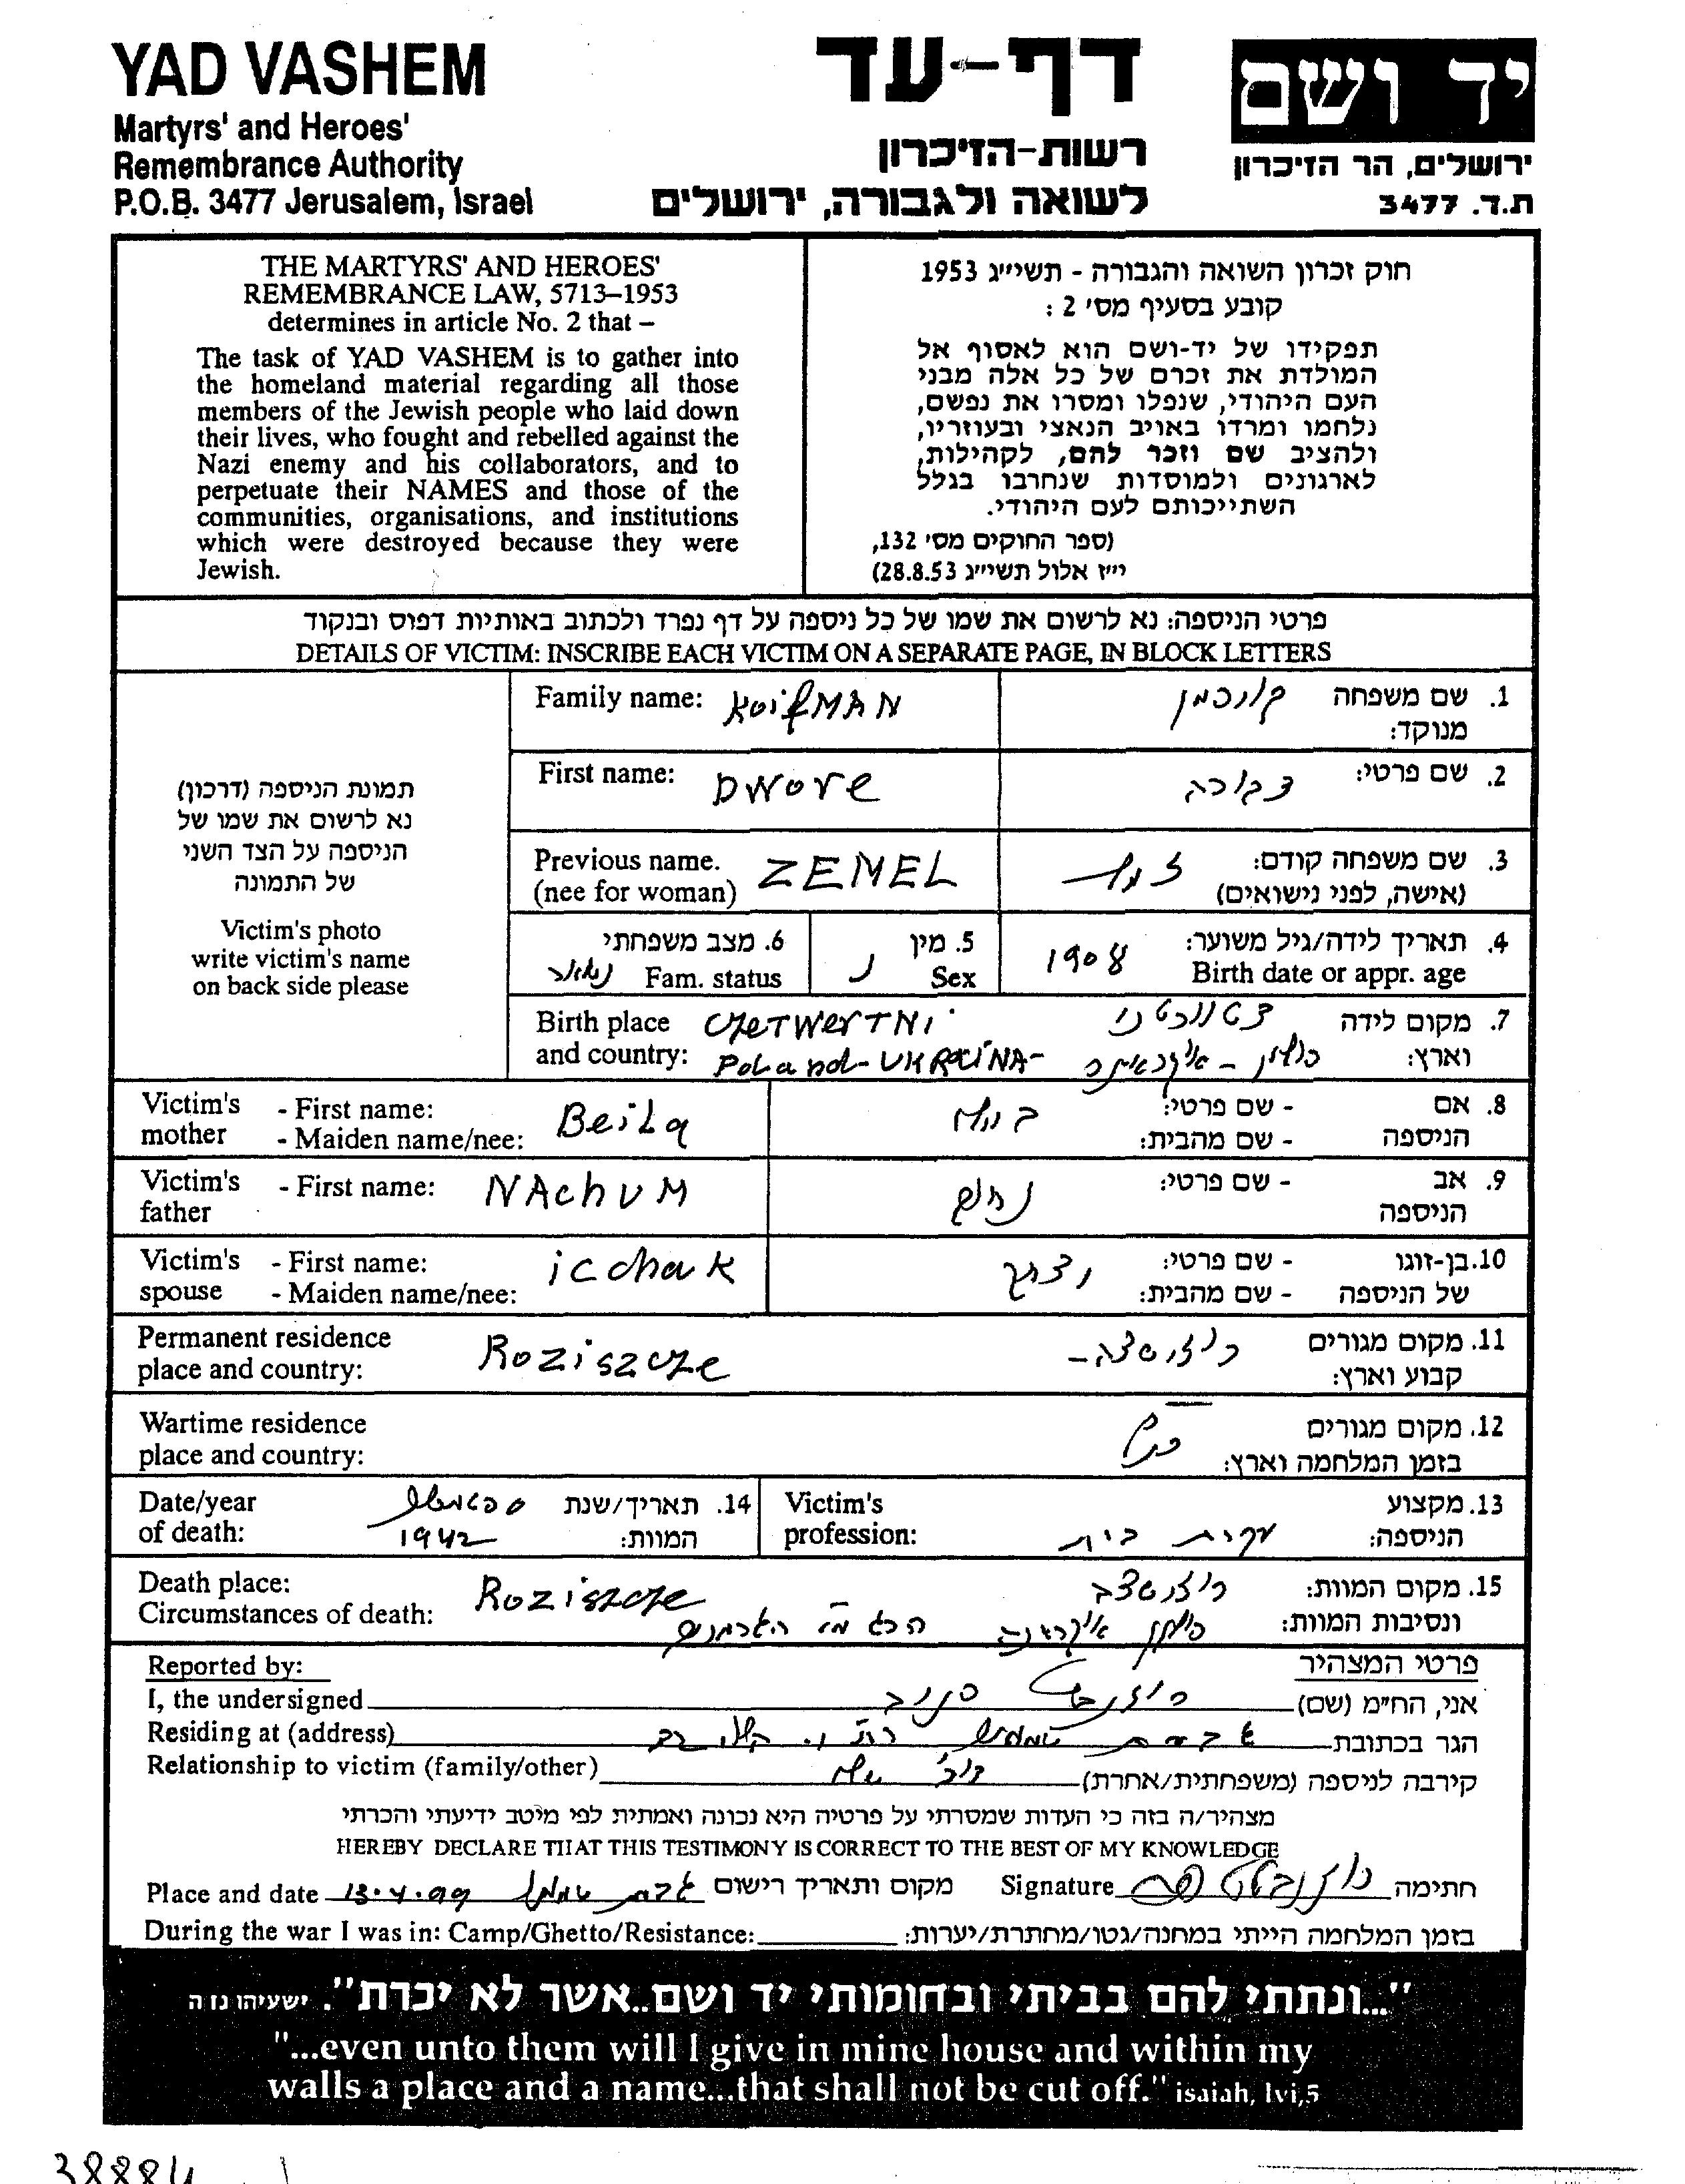 YAD VASHEM
Martyrs' and Heroes'
Remembrance Authority
P.O.B. 3477 Jerusalem, Israel
דף-עד
רשות-הזיכרון
לשואה ולגבורה, ירושלים
יד ושם
ירושלים, הר הזיכרון
ת.ד. 3477
THE MARTYRS' AND HEROES'
REMEMBRANCE LAW, 5713–1953
determines in article No. 2 that –
The task of YAD VASHEM is to gather into
the homeland material regarding all those
members of the Jewish people who laid down
their lives, who fought and rebelled against the
Nazi enemy and his collaborators, and to
perpetuate their NAMES and those of the
communities, organisations, and institutions
which were destroyed because they were
Jewish.
חוק זכרון השואה והגבורה - תשי״ג 1953
קובע בסעיף מס׳ 2 :
תפקידו של יד-ושם הוא לאסוף אל
המולדת את זכרם של כל אלה מבני
העם היהודי, שנפלו ומסרו את נפשם,
נלחמו ומרדו באויב הנאצי ובעוזריו,
ולהציב שם וזכר להם, לקהילות,
לארגונים ולמוסדות שנחרבו בגלל
השתייכותם לעם היהודי.
(ספר החוקים מס׳ 132,
י״ז אלול תשי״ג 28.8.53)
פרטי הניספה: נא לרשום את שמו של כל ניספה על דף נפרד ולכתוב באותיות דפוס ובנקוד
DETAILS OF VICTIM: INSCRIBE EACH VICTIM ON A SEPARATE PAGE, IN BLOCK LETTERS
תמונת הניספה (דרכון)
נא לרשום את שמו של
הניספה על הצד השני
של התמונה
Victim's photo
write victim's name
on back side please
Family name: KoifMAN
1. שם משפחה קויפמן
מנוקד:
First name: DWore
2. שם פרטי: דבורה
Previous name. ZEMEL
(nee for woman)
3. שם משפחה קודם: זמל
(אישה, לפני נישואים)
4. תאריך לידה/גיל משוער: 1908
Birth date or appr. age
5. מין נ
Sex
6. מצב משפחתי
Fam. status נשואה
Birth place CZETWERTNI
and country: PoLand-UKRAiNA-
7. מקום לידה
וארץ: פולין - אוקראינה
Victim's - First name: BeiLa
mother - Maiden name/nee:
8. אם - שם פרטי: ביילה
הניספה - שם מהבית:
Victim's - First name: NAchuM
father
9. אב - שם פרטי: נחום
הניספה
Victim's - First name: icchak
spouse - Maiden name/nee:
10. בן-זוגו - שם פרטי: יצחק
של הניספה - שם מהבית:
Permanent residence Roziszcze
place and country:
11. מקום מגורים רוזישצה-
קבוע וארץ:
Wartime residence
place and country:
12. מקום מגורים
בזמן המלחמה וארץ: כנ״ל
Date/year
of death:
14. תאריך/שנת ספטמבר
המוות: 1942
Victim's
profession:
13. מקצוע
הניספה: עקרת בית
Death place: Roziszcze
Circumstances of death:
15. מקום המוות: רוזישצה
ונסיבות המוות: פולין אוקראינה הרג ע״י הגרמנים
Reported by:
פרטי המצהיר
I, the undersigned
אני, הח״מ (שם)
Residing at (address)
הגר בכתובת
Relationship to victim (family/other)
קירבה לניספה (משפחתית/אחרת)
מצהיר/ה בזה כי העדות שמסרתי על פרטיה היא נכונה ואמתית לפי מיטב ידיעתי והכרתי
HEREBY DECLARE THAT THIS TESTIMONY IS CORRECT TO THE BEST OF MY KNOWLEDGE
Place and date 13.4.99 מקום ותאריך רישום Signature חתימה
During the war I was in: Camp/Ghetto/Resistance: בזמן המלחמה הייתי במחנה/גטו/מחתרת/יערות:
"...ונתתי להם בביתי ובחומותי יד ושם..אשר לא יכרת". ישעיהו נז ה
"...even unto them will I give in mine house and within my
walls a place and a name...that shall not be cut off." isaiah, lvi,5
38884